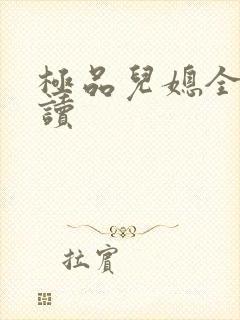 極品兒媳全
讀
拉賓